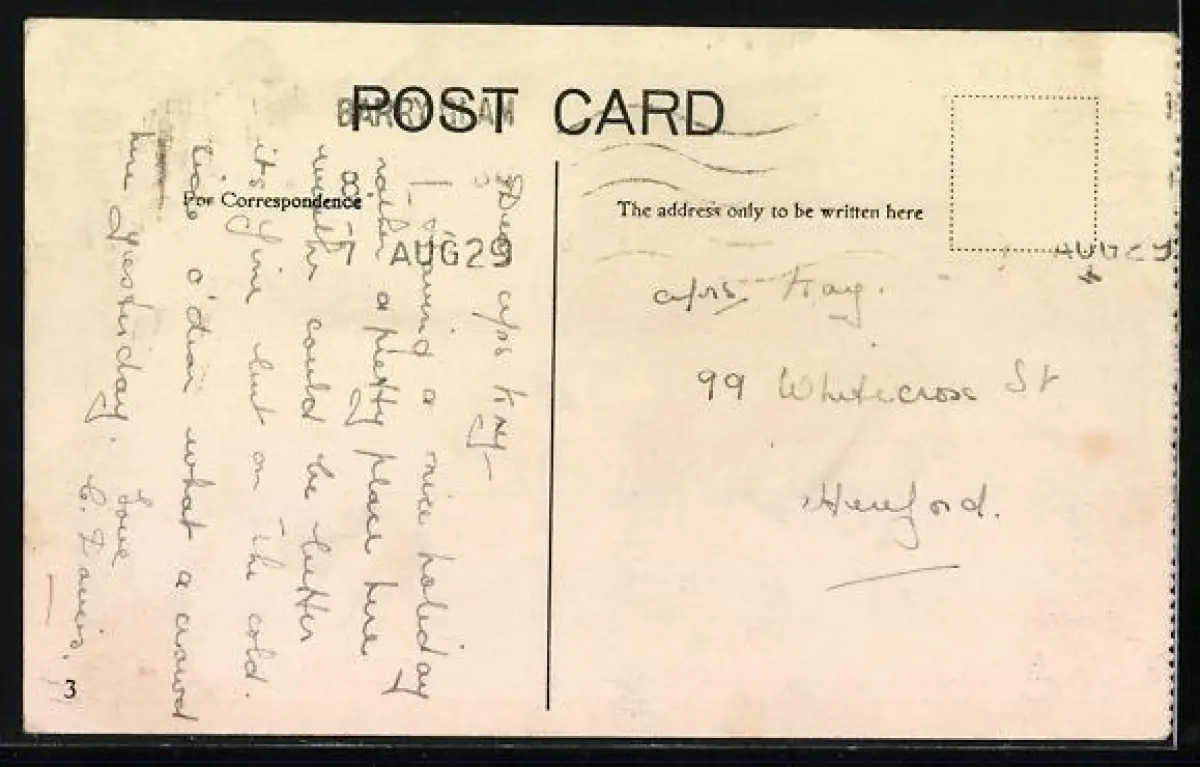 POST CARD
BARRY
For Correspondence
The address only to be written here
7 AUG 29
AUG 29
Dear Mrs Kay-
having a nice holiday
rather a pretty place here
weather could be better
its fine but on the cold.
side o'dear what a crowd
here yesterday. Love
Mrs Kay.
99 Whitecross St
Hereford.
3